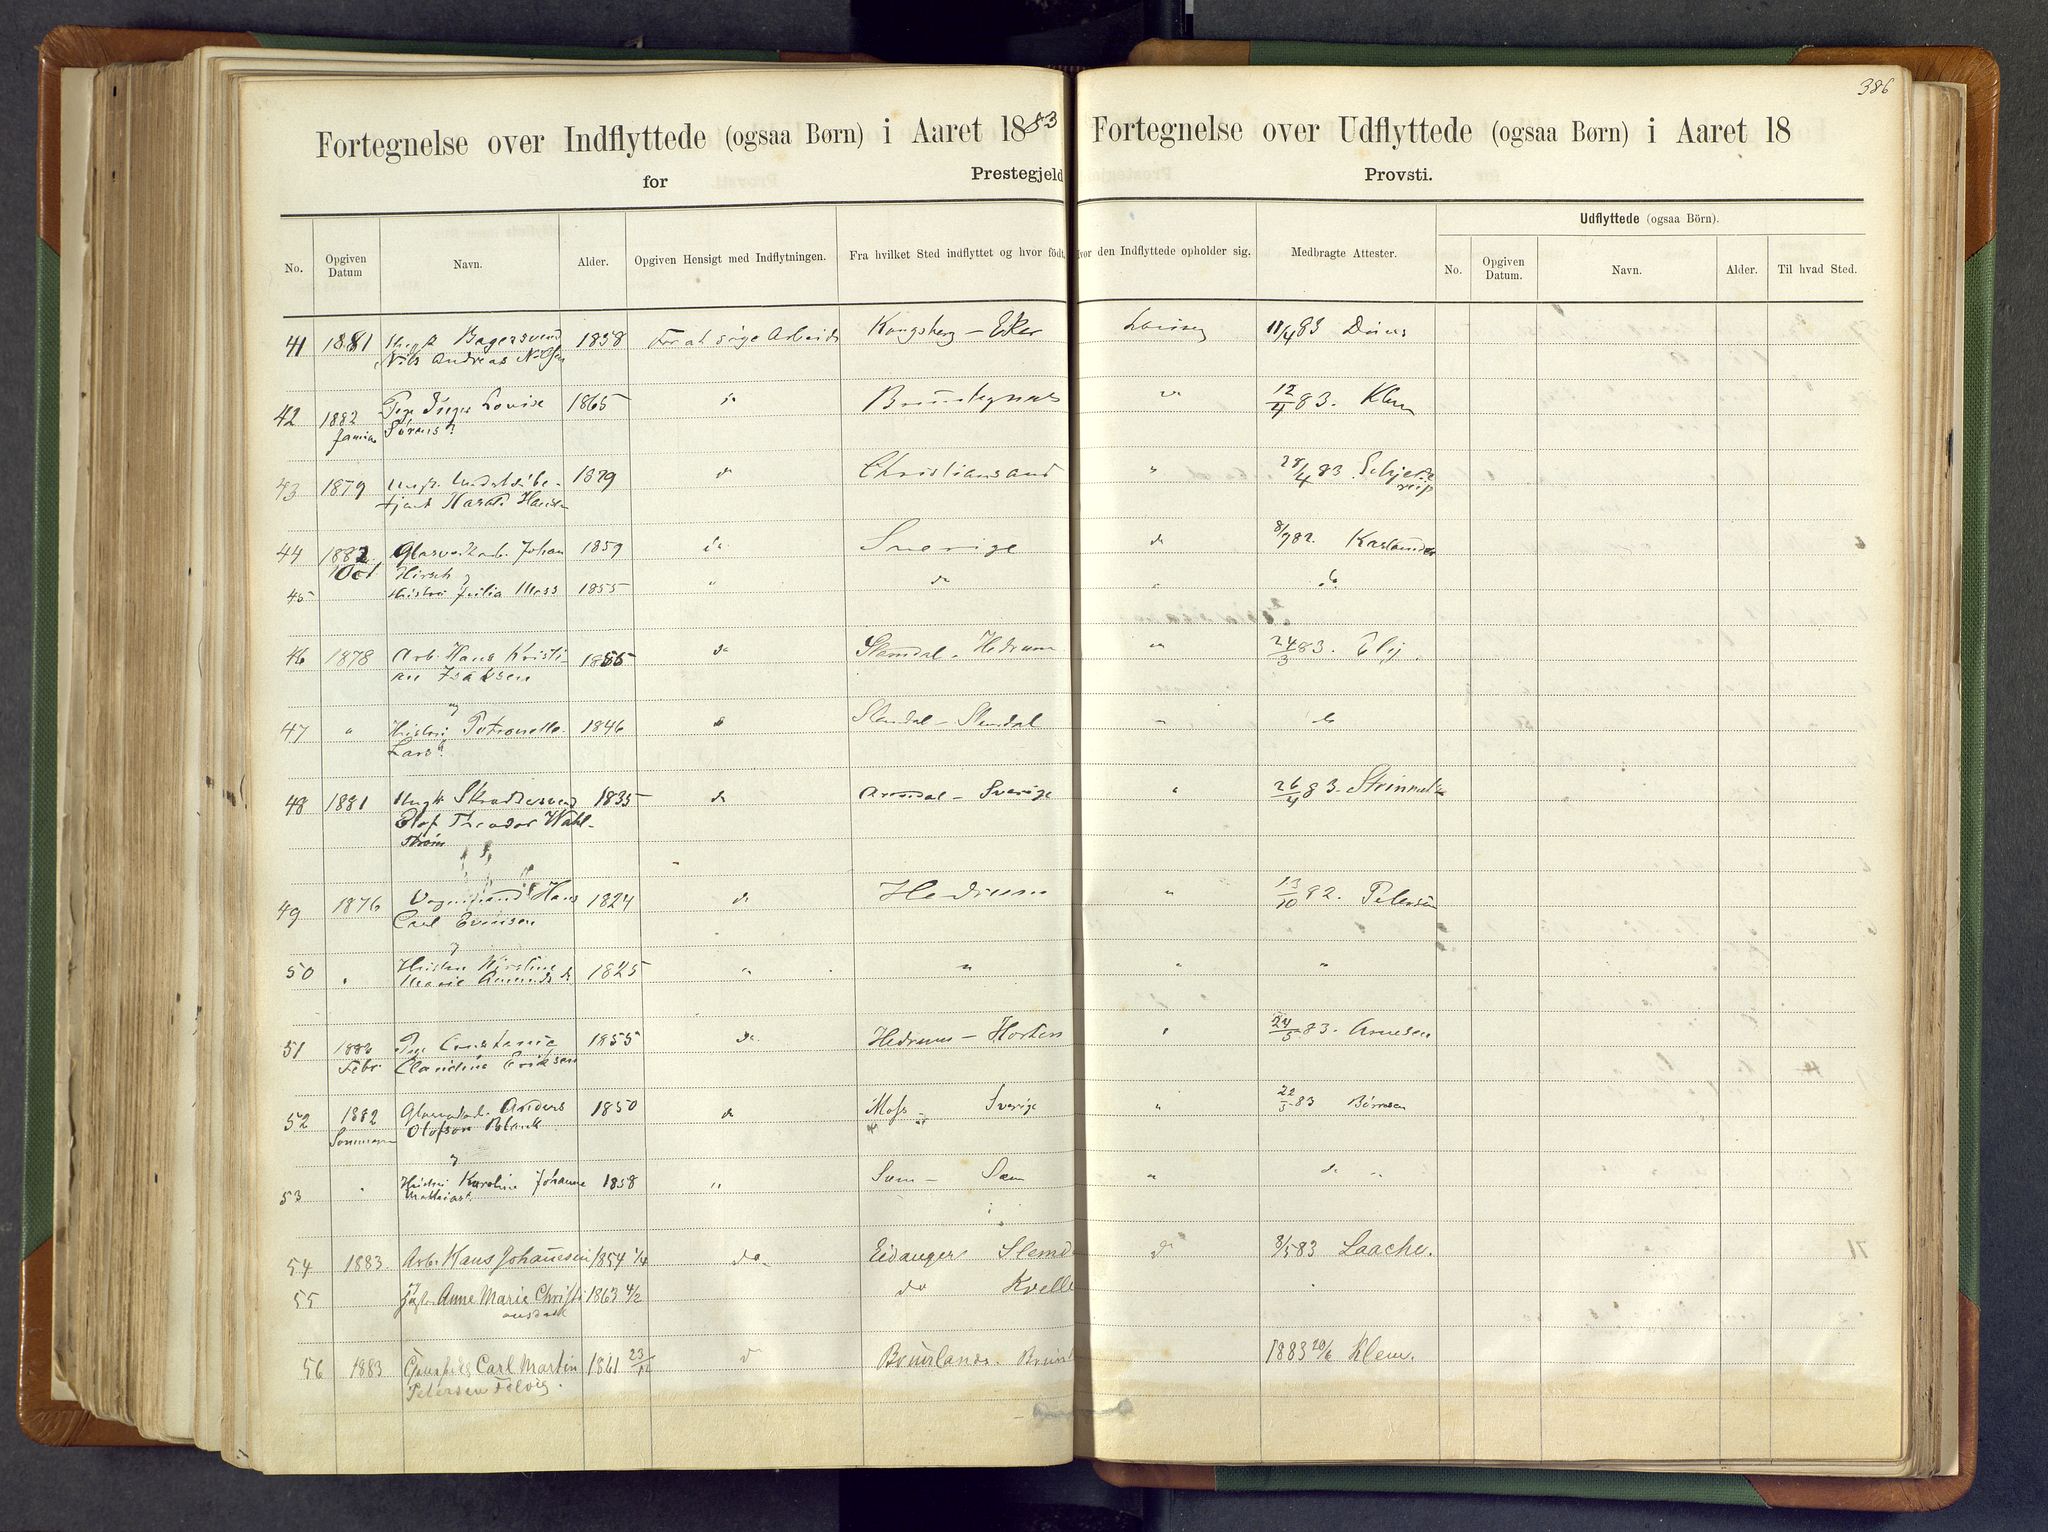 386
Fortegnelse over Indflyttede (ogsaa Børn) i Aaret 1883
for Prestegjeld
Fortegnelse over Udflyttede (ogsaa Børn) i Aaret 18
Provsti.
No. Opgiven Datum Navn. Alder. Opgiven Hensigt med Indflytningen. Fra hvilket Sted indflyttet og hvor født, Hvor den Indflyttede opholder sig. Medbragte Attester.
Udflyttede (ogsaa Börn).
No. Opgiven Datum. Navn. Alder. Til hvad Sted.
41 1881 Bagersvend 1858 For at søge Arbeide Kongsberg - Eker 11/4 83
Nils Andreas Nilsen
42 1882 Pige Inger Lovise 1865 do 12/4 83. Klem
Januar Sörens d.
43 1879 1879 do Christiansand " 28/4 83.
tjent Harald Hansen
44 1882 Glasværkarb. Johan 1859 do. Sverige do 8/9 82.
Oct Hirsch og
45 Hustru Julia Moss 1855 " do " do
46 1878 Arb. Hans Kristi- 1855 do Slemdal - Hedrum " 24/3 83.
an Isaksen
og
47 " Hustru Petronelle 1846 Slemdal - Slemdal " do
Lars d.
48 1881 Ungk Skrædersvend 1835 do Arendal - Sverige " 26/4 83.
Olof Theodor Wahl-
strøm
49 1876 Vognmand Hans 1824 do Hedrum " 13/10 82. Petersen
Carl Evensen
og
50 " Hustru Kirstine 1825 " " " "
Marie Amunds d.
51 1883 Pige Constance 1855 do. Hedrum - Horten " 24/5 83. Arnesen
Febr. Claudine Eriksen
52 1882 Anders 1850 do Moss - Sverige " 22/5 83 Börresen
Sommeren Olofson Blank
og
53 " Hustru Karoline Johanne 1858 " Sem - Sem " do "
Mathiasd.
54 1883 Arb. Hans Johannesen 1854 1/4 do Eidanger Slemd d 8/5 83 Laache.
55 Anne Marie Christi 1863 4/2 do Kvelle
ansdatt
56 1883 Carl Martin 1861 23/12 d Brunlanes. Brunl 1883 20/6 Klem.
Petersen Tolvig.